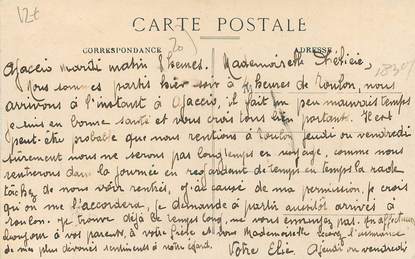 12t
CARTE POSTALE
CORRESPONDANCE
20
ADRESSE
Ajaccio mardi matin 8 heures. Mademoiselle Félicie,
Nous sommes partis hier soir à 4 heures de Toulon, nous
arrivons à l'instant à Ajaccio, il fait un peu mauvais temps
je suis en bonne santé et vous crois tous bien portants. Il est
peut-être probable que nous rentions à Toulon jeudi ou vendredi
surement nous ne serons pas longtemps en voyage, comme nous
rentrerons dans la journée en regardant de temps en temps la rade
tâchez de nous voir rentrés, à cause de ma permission, je crois
qu'on me l'accordera, je demande à partir aussitôt arrivés à
Toulon. Je trouve déjà le temps long, ne vous ennuyez pas. En affectueux
bonjour à vos parents, à votre frère et vous Mademoiselle recevez l'assurance
de mes plus dévoués sentiments à votre égard. Votre Elie. A jeudi ou vendredi